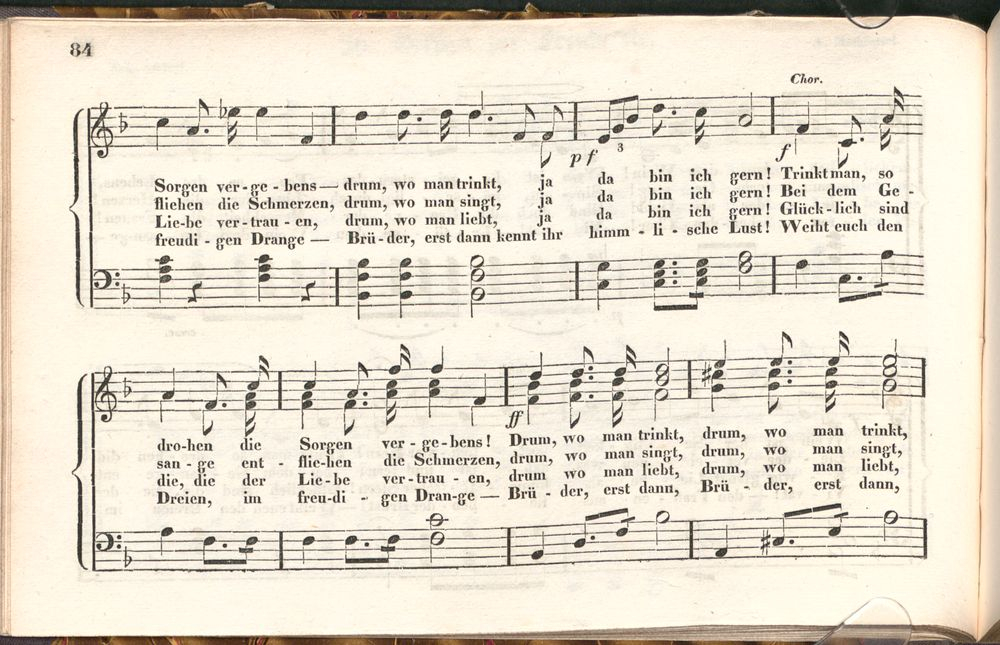 84
Chor.
p f 3 f
Sorgen ver-ge-bens — drum, wo man trinkt, ja da bin ich gern! Trinkt man, so
fliehen die Schmerzen, drum, wo man singt, ja da bin ich gern! Bei dem Ge-
Lie-be ver-trau-en, drum, wo man liebt, ja da bin ich gern! Glück-lich sind
freudi-gen Drange — Brü-der, erst dann kennt ihr himm-li-sche Lust! Weiht euch den
ff
dro-hen die Sorgen ver-ge-bens! Drum, wo man trinkt, drum, wo man trinkt,
san-ge ent flie-hen die Schmerzen, drum, wo man singt, drum, wo man singt,
die, die der Lie-be ver-trau-en, drum wo man liebt, drum, wo man liebt,
Dreien, im freu-di-gen Dran-ge — Brü-der, erst dann, Brü-der, erst dann,